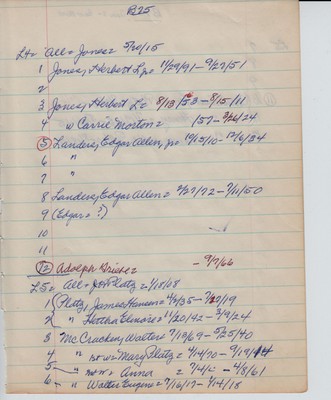 B25
Lt= All= Jones= 5/20/15
1 Jones, Herbert L, jr= 11/29/91-9/27/51
2
3 Jones, Herbert L= 8/13/53-8/15/11
4 w Carrie Morton= 157-3/26/24
5 Landers, Edgar Allen, jr= -12/6/34
6 "
7 "
8 Landers, Edgar Allen= 2/27/72-7/11/50
9 (Edgar=?)
10
11
12 Adolph - 9/9/66
L5= All= Jos Platz= 1/18/08
1 Platz, James = 4/3/35-7/20/19
2 " Hettha Elnore= 11/20/42-3/9/24
3 McCracken, Walter= 7/13/69-5/25/40
4 " w= Mary Platz= 4/14/70-9/19/14
5 w= Anna = 7/4/6-4/8/61
6 " Walter Eugene= 7/16/17-7/14/18